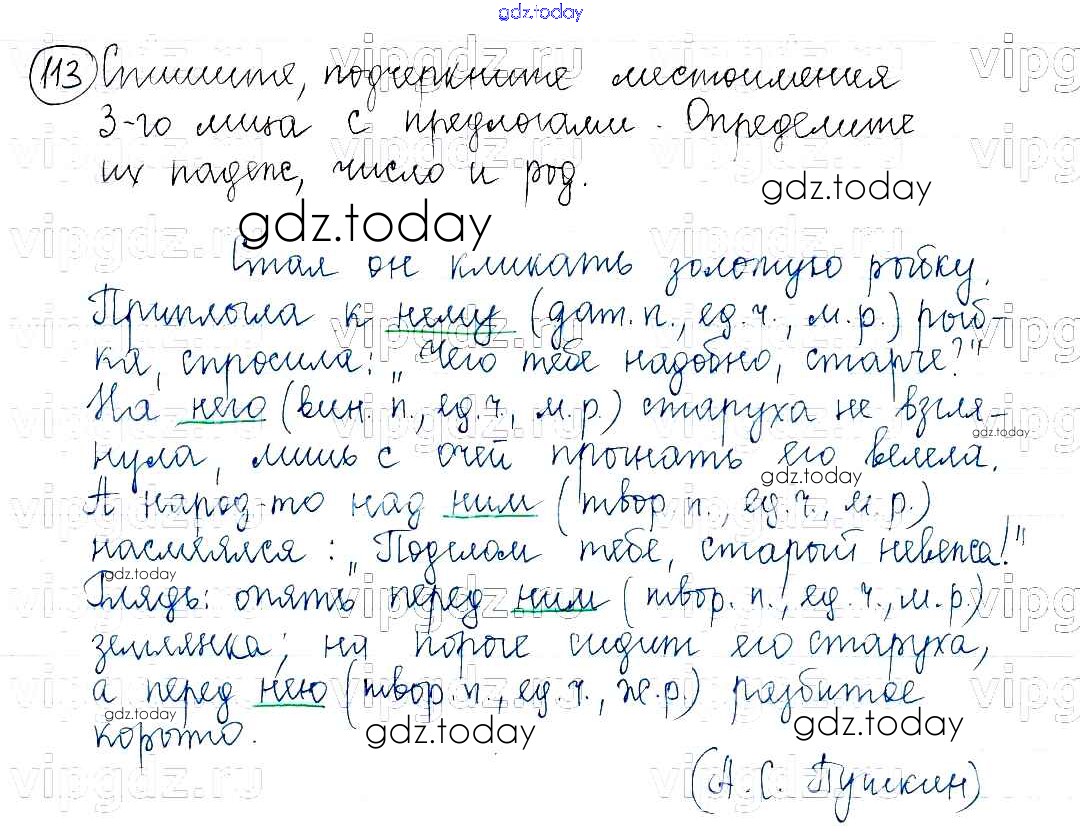 gdz.today
113 Спишите, подчеркните местоимения
3-го лица с предлогами. Определите
их падеж, число и род.
gdz.today
gdz.today
Стал он кликать золотую рыбку.
Приплыла к нему (дат. п., ед. ч., м. р.) рыб-
ка, спросила: „Чего тебе надобно, старче?"
На него (вин. п., ед. ч., м. р.) старуха не взгля-
gdz.today
нула, лишь с очей прогнать его велела.
gdz.today
А народ-то над ним (твор. п., ед. ч., м. р.)
насмеялся: „Поделом тебе, старый невежа!"
gdz.today
Глядь: опять перед ним (твор. п., ед. ч., м. р.)
землянка; на пороге сидит его старуха,
а перед нею (твор. п., ед. ч., ж. р.) разбитое
gdz.today
корыто.
gdz.today
gdz.today
(А. С. Пушкин)
vipgdz.ru